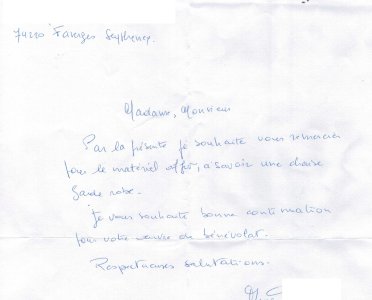 74210 Faverges Seythenex
Madame, Monsieur
Par la présente je souhaite vous remercier
pour le matériel offert, à savoir une chaise
Garde robe.
Je vous souhaite bonne continuation
pour votre œuvre de bénévolat.
Respectueuses salutations.